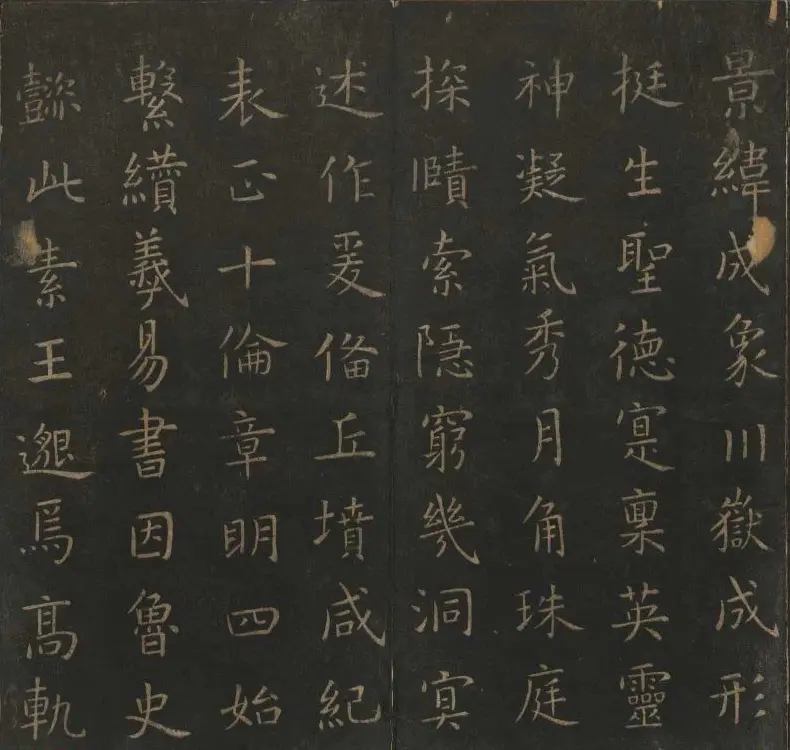 景緯成象川嶽成形
挺生聖德寔稟英靈
神凝氣秀月角珠庭
探賾索隱窮幾洞冥
述作爰備丘墳咸紀
表正十倫章明四始
繫纘羲易書因魯史
懿此素王邈焉高軌